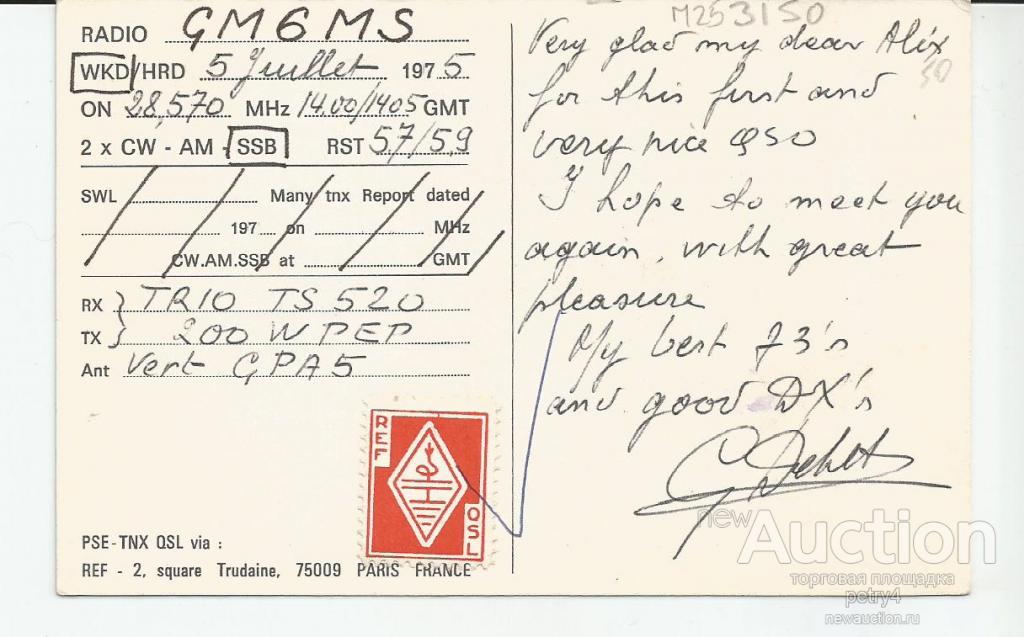 RADIO GM6MS
WKD/HRD 5 Juillet 1975
ON 28,570 MHz 14.00/1405 GMT
2 x CW - AM - SSB RST 57/59
SWL Many tnx Report dated
197 on MHz
CW.AM.SSB at GMT
RX } TRIO TS 520
TX } 200 W PEP
Ant Vert GPA5
REF
QSL
PSE-TNX QSL via :
REF - 2, square Trudaine, 75009 PARIS FRANCE
M253150
50
Very glad my dear Alex
for this first and
very nice QSO
I hope to meet you
again, with great
pleasure
My best 73's
and good DX's
newAuction
торговая площадка
petry4
newauction.ru